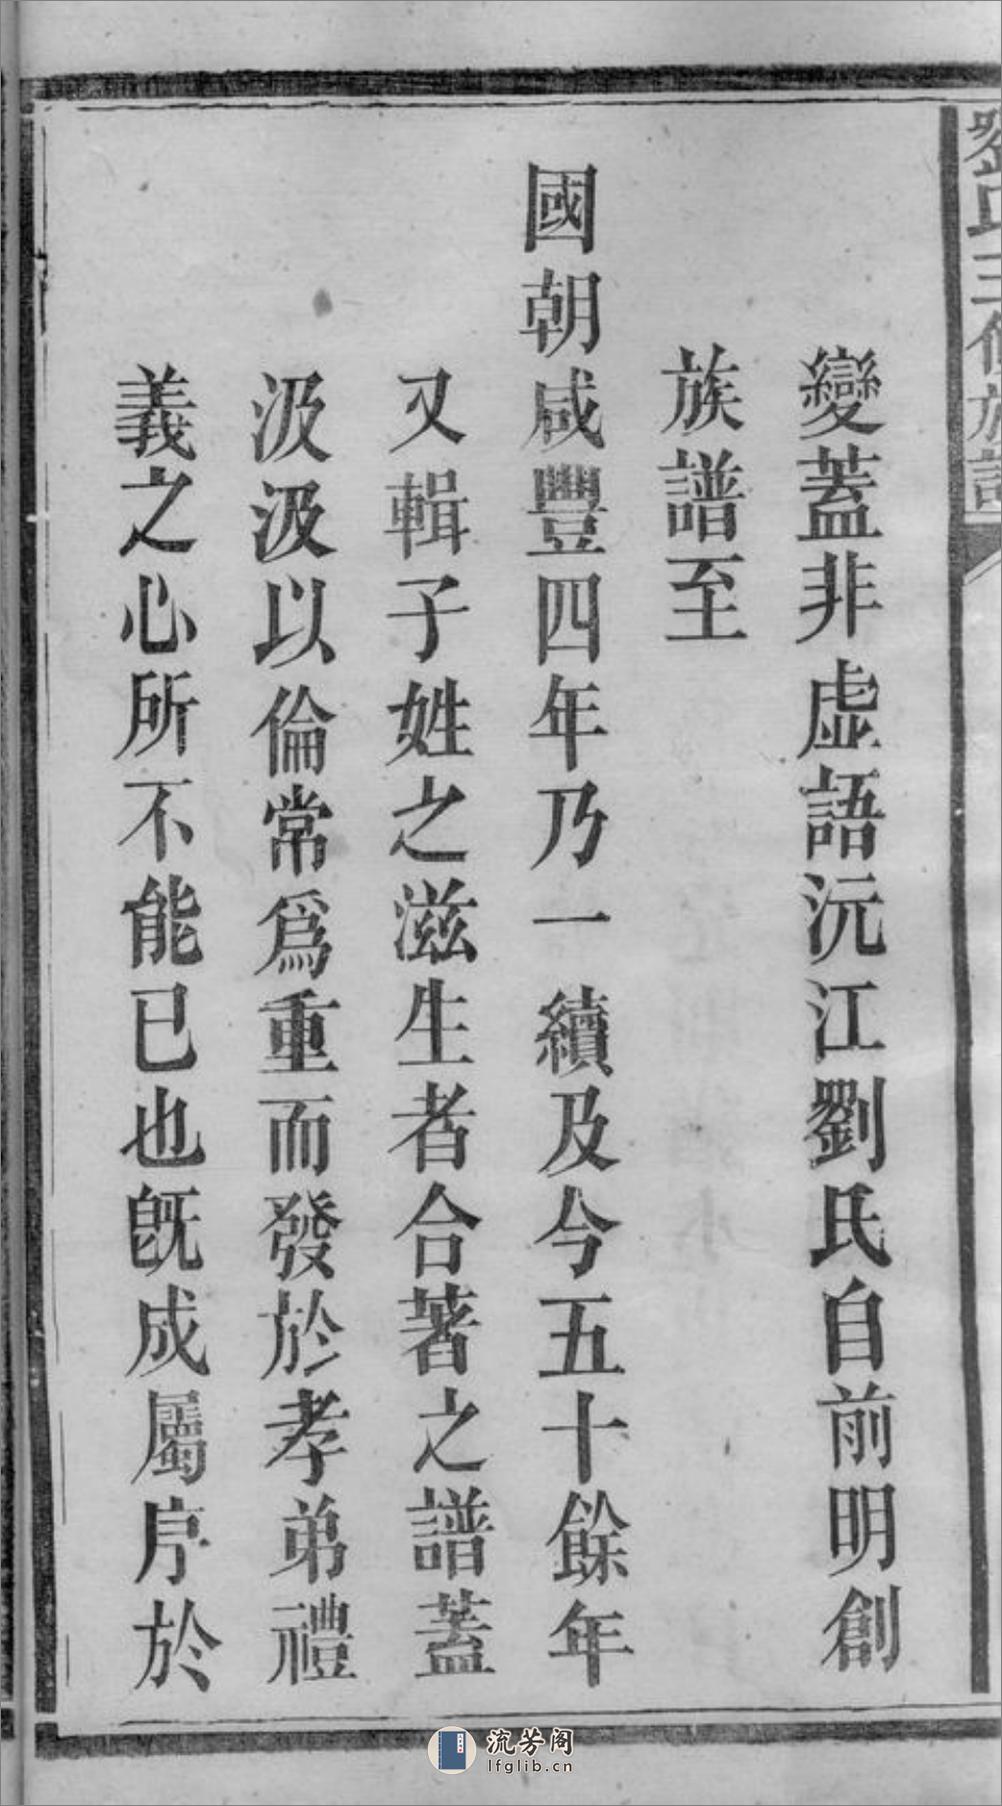 劉氏三修族譜
變蓋非虛語沅江劉氏自前明創
族譜至
國朝咸豐四年乃一續及今五十餘年
又輯子姓之滋生者合著之譜蓋
汲汲以倫常爲重而發於孝弟禮
義之心所不能已也旣成屬序於
流芳阁
lfglib.cn